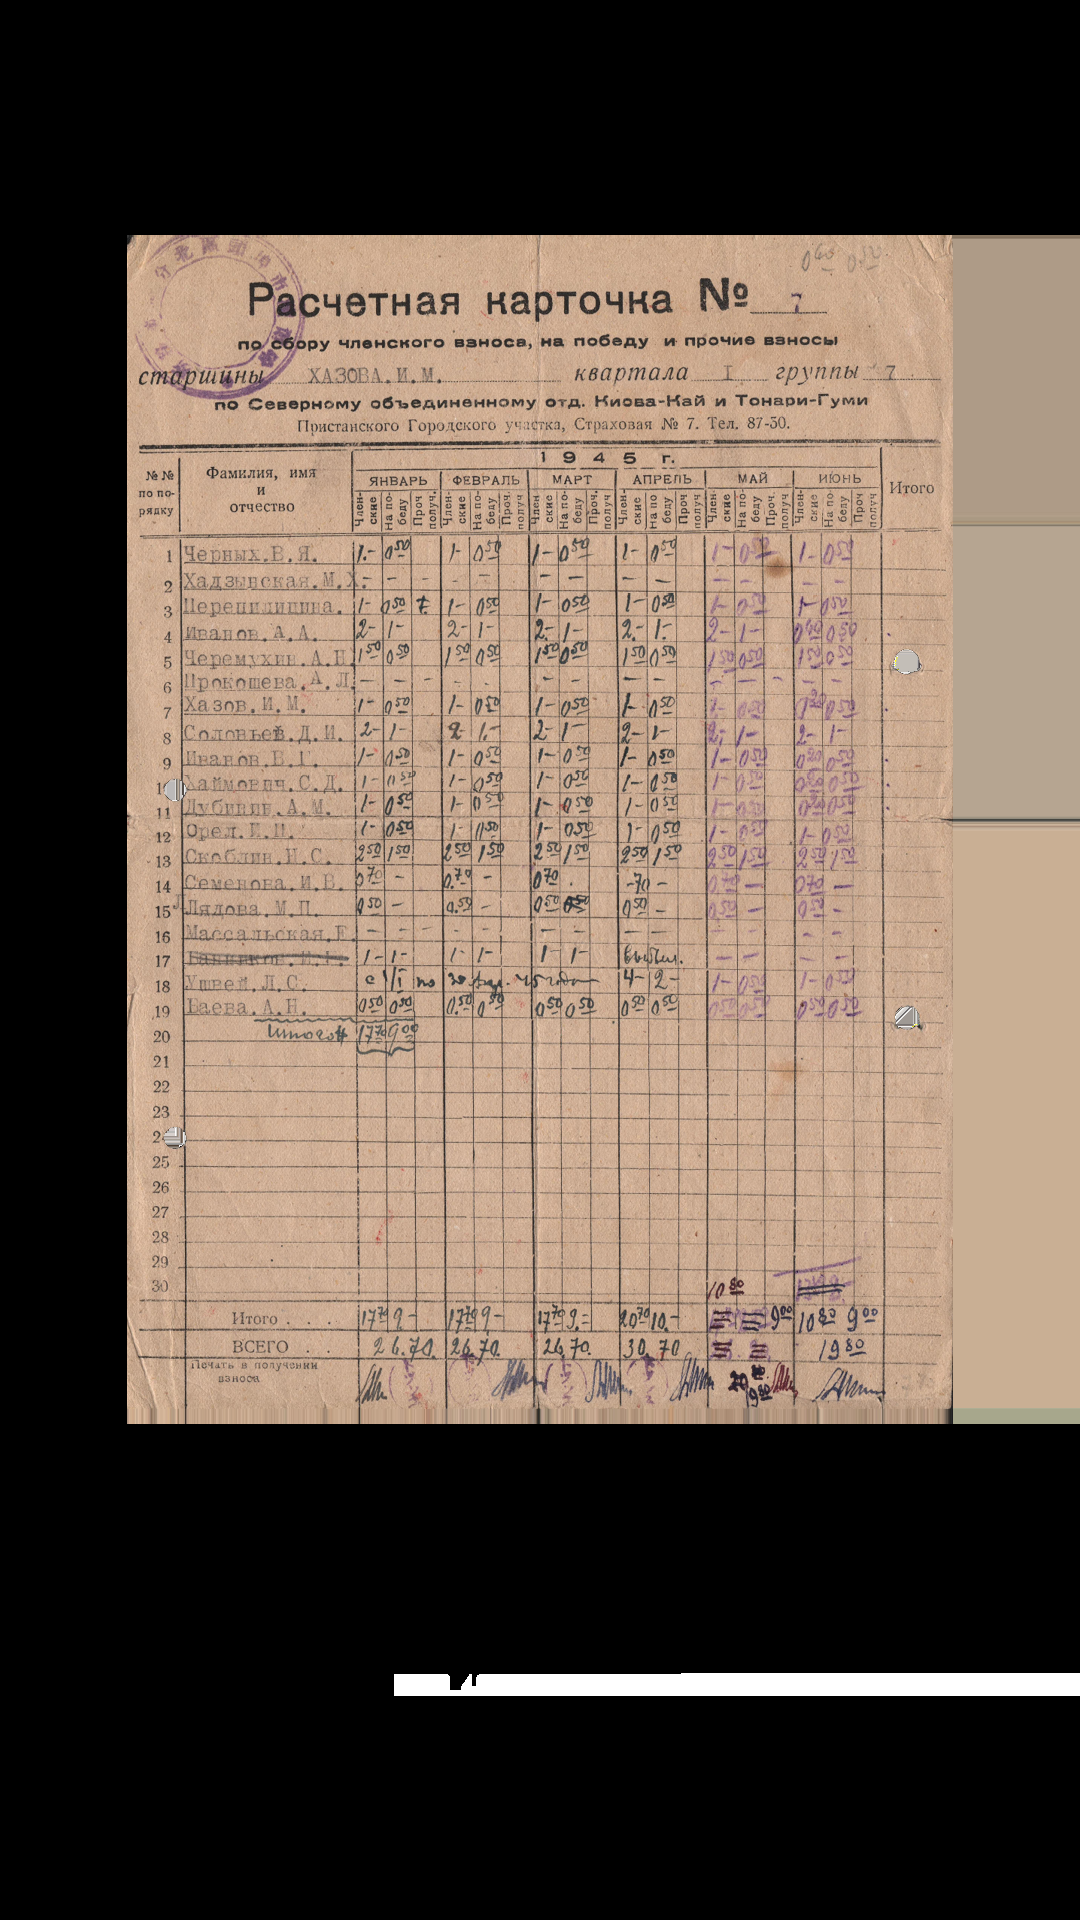 0.60 0.50
Расчетная карточка № 7
по сбору членского взноса, на победу и прочие взносы
старшины ХАЗОВА.И.М. квартала I группы 7
по Северному объединенному отд. Киова-Кай и Тонари-Гуми
Пристанского Городского участка, Страховая № 7. Тел. 87-50.
№№ по по-рядку Фамилия, имя и отчество 1945 г. Итого
ЯНВАРЬ ФЕВРАЛЬ МАРТ АПРЕЛЬ МАЙ ИЮНЬ
Член-ские На по-беду Проч. получ. Член-ские На по-беду Проч. получ Член-ские На по-беду Проч. получ Член-ские На по беду Проч получ Член-ские На по-беду Проч. получ Член-ские На по-беду Проч получ
1 Черных.В.Я. 1.- 0 50 1- 0 50 1- 0 50 1- 0 50 1- 0 50 1- 0 50
2 Хадзынская.М.Х. - - - - - - - - - - - -
3 Перепилицина. 1- 0 50 1- 0 50 1- 0 50 1- 0 50 1- 0 50 1- 0 50
4 Иванов.А.А. 2- 1- 2- 1- 2- 1- 2- 1- 2- 1- 0 50
5 Черемухин.А.Н. 1 50 0 50 1 50 0 50 1 50 0 50 1 50 0 50 1 50 0 50 1 50 0 50
6 Прокошева.А.Л. - - - - - - - - - - - - -
7 Хазов.И.М. 1- 0 50 1- 0 50 1- 0 50 1- 0 50 1- 0 50 0 50
8 Соловьев.Д.И. 2- 1- 2- 1.- 2- 1- 2- 1- 2- 1- 2- 1-
9 Иванов.В.Г. 1- 0 50 1- 0 50 1- 0 50 1- 0 50 1- 0 50 0 50
1 Хаймович.С.Д. 1- 0 50 1- 0 50 1- 0 50 1- 0 50 1- 0 50 0 50
11 Дубинин.А.М. 1- 0 50 1- 0 50 1- 0 50 1- 0 50 1- 0 50 0 50
12 Орел.И.П. 1- 0 50 1- 0 50 1- 0 50 1- 0 50 1- 0 50 1- 0 50
13 Скоблин.Н.С. 2 50 1 50 2 50 1 50 2 50 1 50 2 50 1 50 2 50 1 50 2 50 1 50
14 Семенова.И.В. 0 70 - 0.70 - 0 70 -70 - 0 70 - 0 70 -
15 Лядова.М.П. 0 50 - 0.50 - 0 50 0 50 - 0 50 - 0 50 -
16 Массальская.Е. - - - - - - - - - - - -
17 1- 1- 1- 1- 1- 1- выбыл. - - - -
18 Ушвей.Л.С. с 1/I по 4- 2- 1- 0 50 1- 0 50
19 Баева.А.Н. 0 50 0 50 0.50 0 50 0 50 0 50 0 50 0 50 0 50 0 50 0 50 0 50
20 Итого 17 70 9 00
21
22
23
2
25
26
27
28
29
30 10 80
Итого . . . . 17 70 9- 17 70 9- 17 70 9.- 20 70 10.- 9 00 10 80 9 00
ВСЕГО . . . 26.70. 26.70. 26.70. 30.70 19 80
Печать в получении взноса